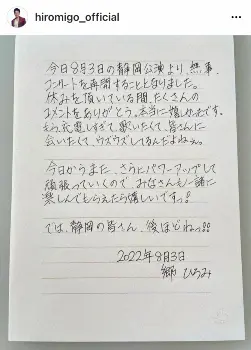 hiromigo_official
今日8月3日の静岡公演より、無事、
コンサートを再開することとなりました。
休みを頂いている間、たくさんの
コメントをありがとう。本当に嬉しかったです。
もう充電しすぎて、歌いたくて、皆さんに
会いたくて、ウズウズしてるんだよねぇ。
今日からまた、さらにパワーアップして
頑張っていくので、みなさんも一緒に
楽しんでもらえたら嬉しいですっ!
では、静岡の皆さん、後ほどねっ!!
2022年8月3日
郷 ひろみ